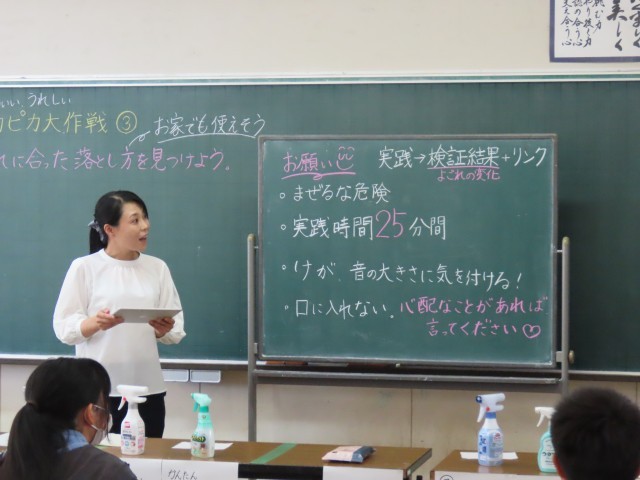 いい、うれしい
ピカ大作戦 ③ お家でも使えそう
に合った落とし方を見つけよう。
お願い
実践→検証結果+リンク
よごれの変化
・まぜるな危険
・実践時間25分間
・けが、音の大きさに気を付ける!
・口に入れない。心配なことがあれば
言ってください♡
かんたん